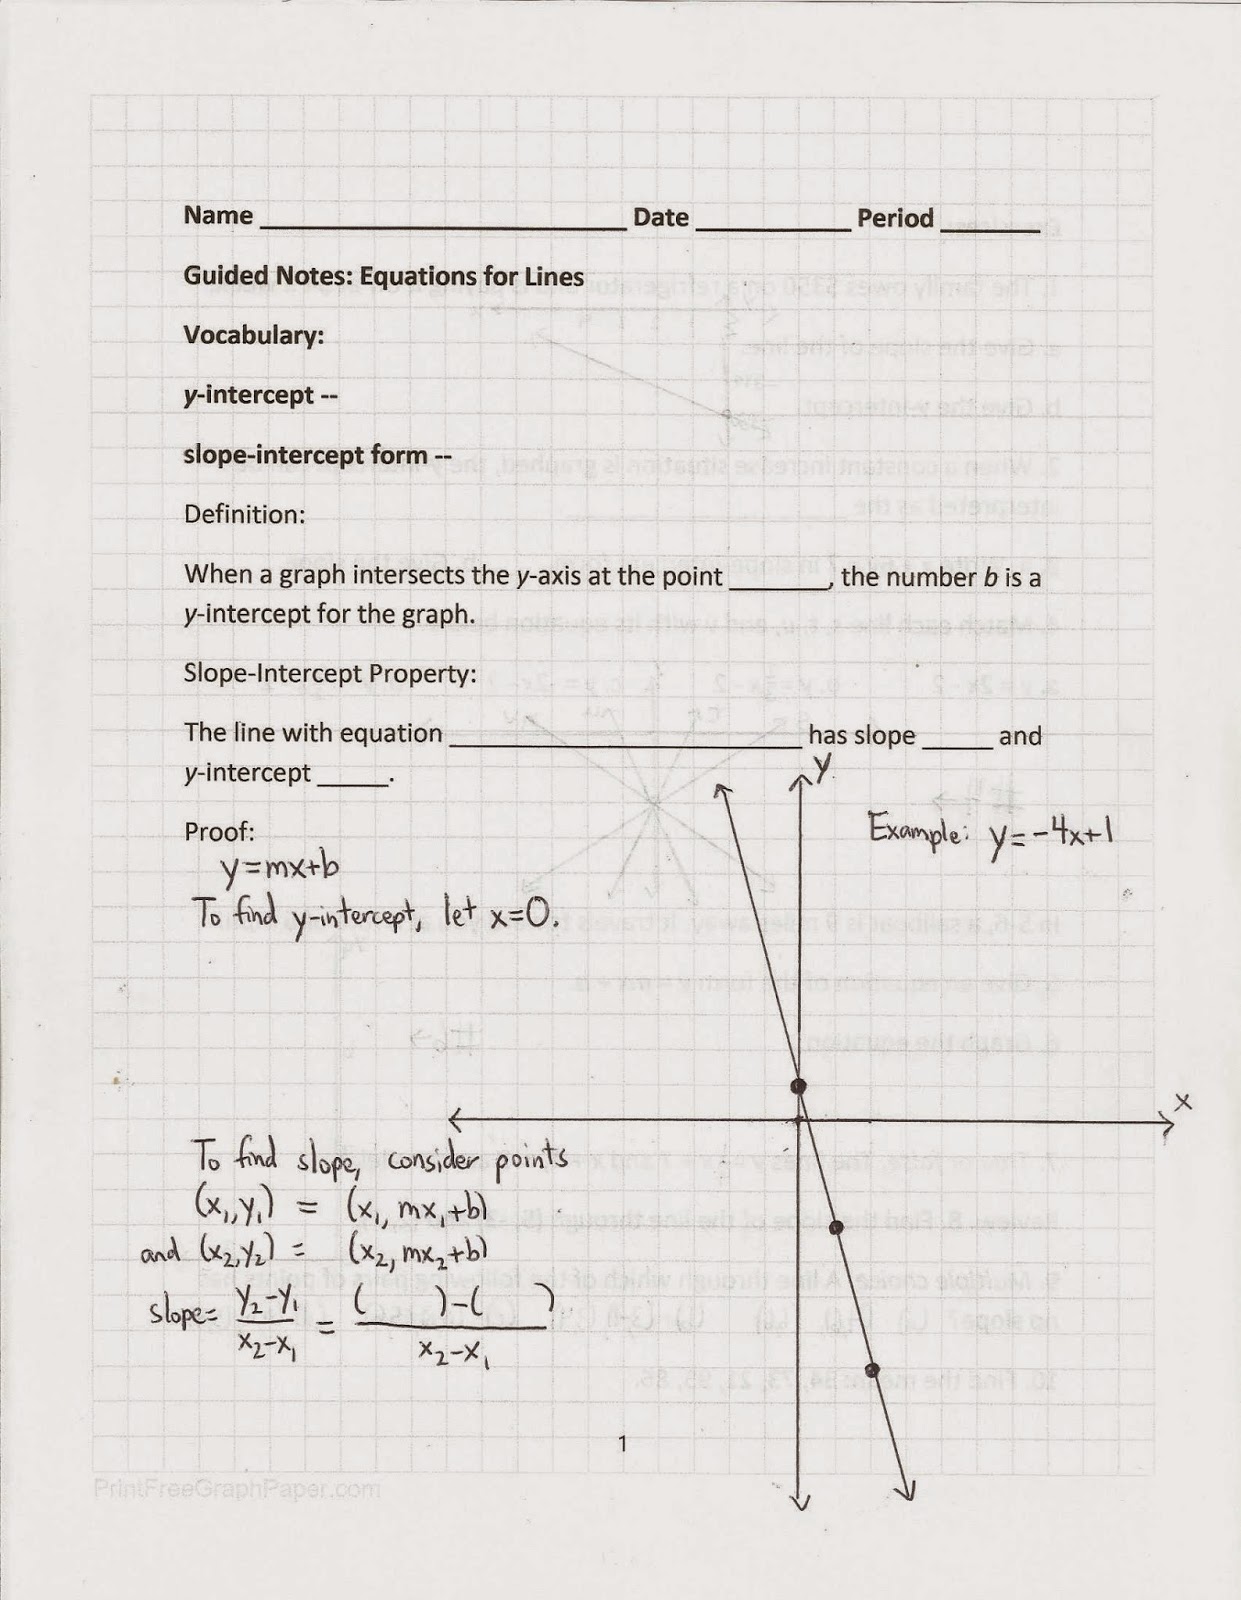 Name ______ Date ______ Period ______
Guided Notes: Equations for Lines
Vocabulary:
y-intercept --
slope-intercept form --
Definition:
When a graph intersects the y-axis at the point ______, the number b is a
y-intercept for the graph.
Slope-Intercept Property:
The line with equation ______ has slope ______ and
y-intercept ______.
y
Example: y=-4x+1
Proof:
y=mx+b
To find y-intercept, let x=0.
x
To find slope, consider points
(x₁,y₁) = (x₁, mx₁+b)
and (x₂,y₂) = (x₂, mx₂+b)
slope= y₂-y₁ / x₂-x₁ = ( )-( ) / x₂-x₁
1
PrintFreeGraphPaper.com